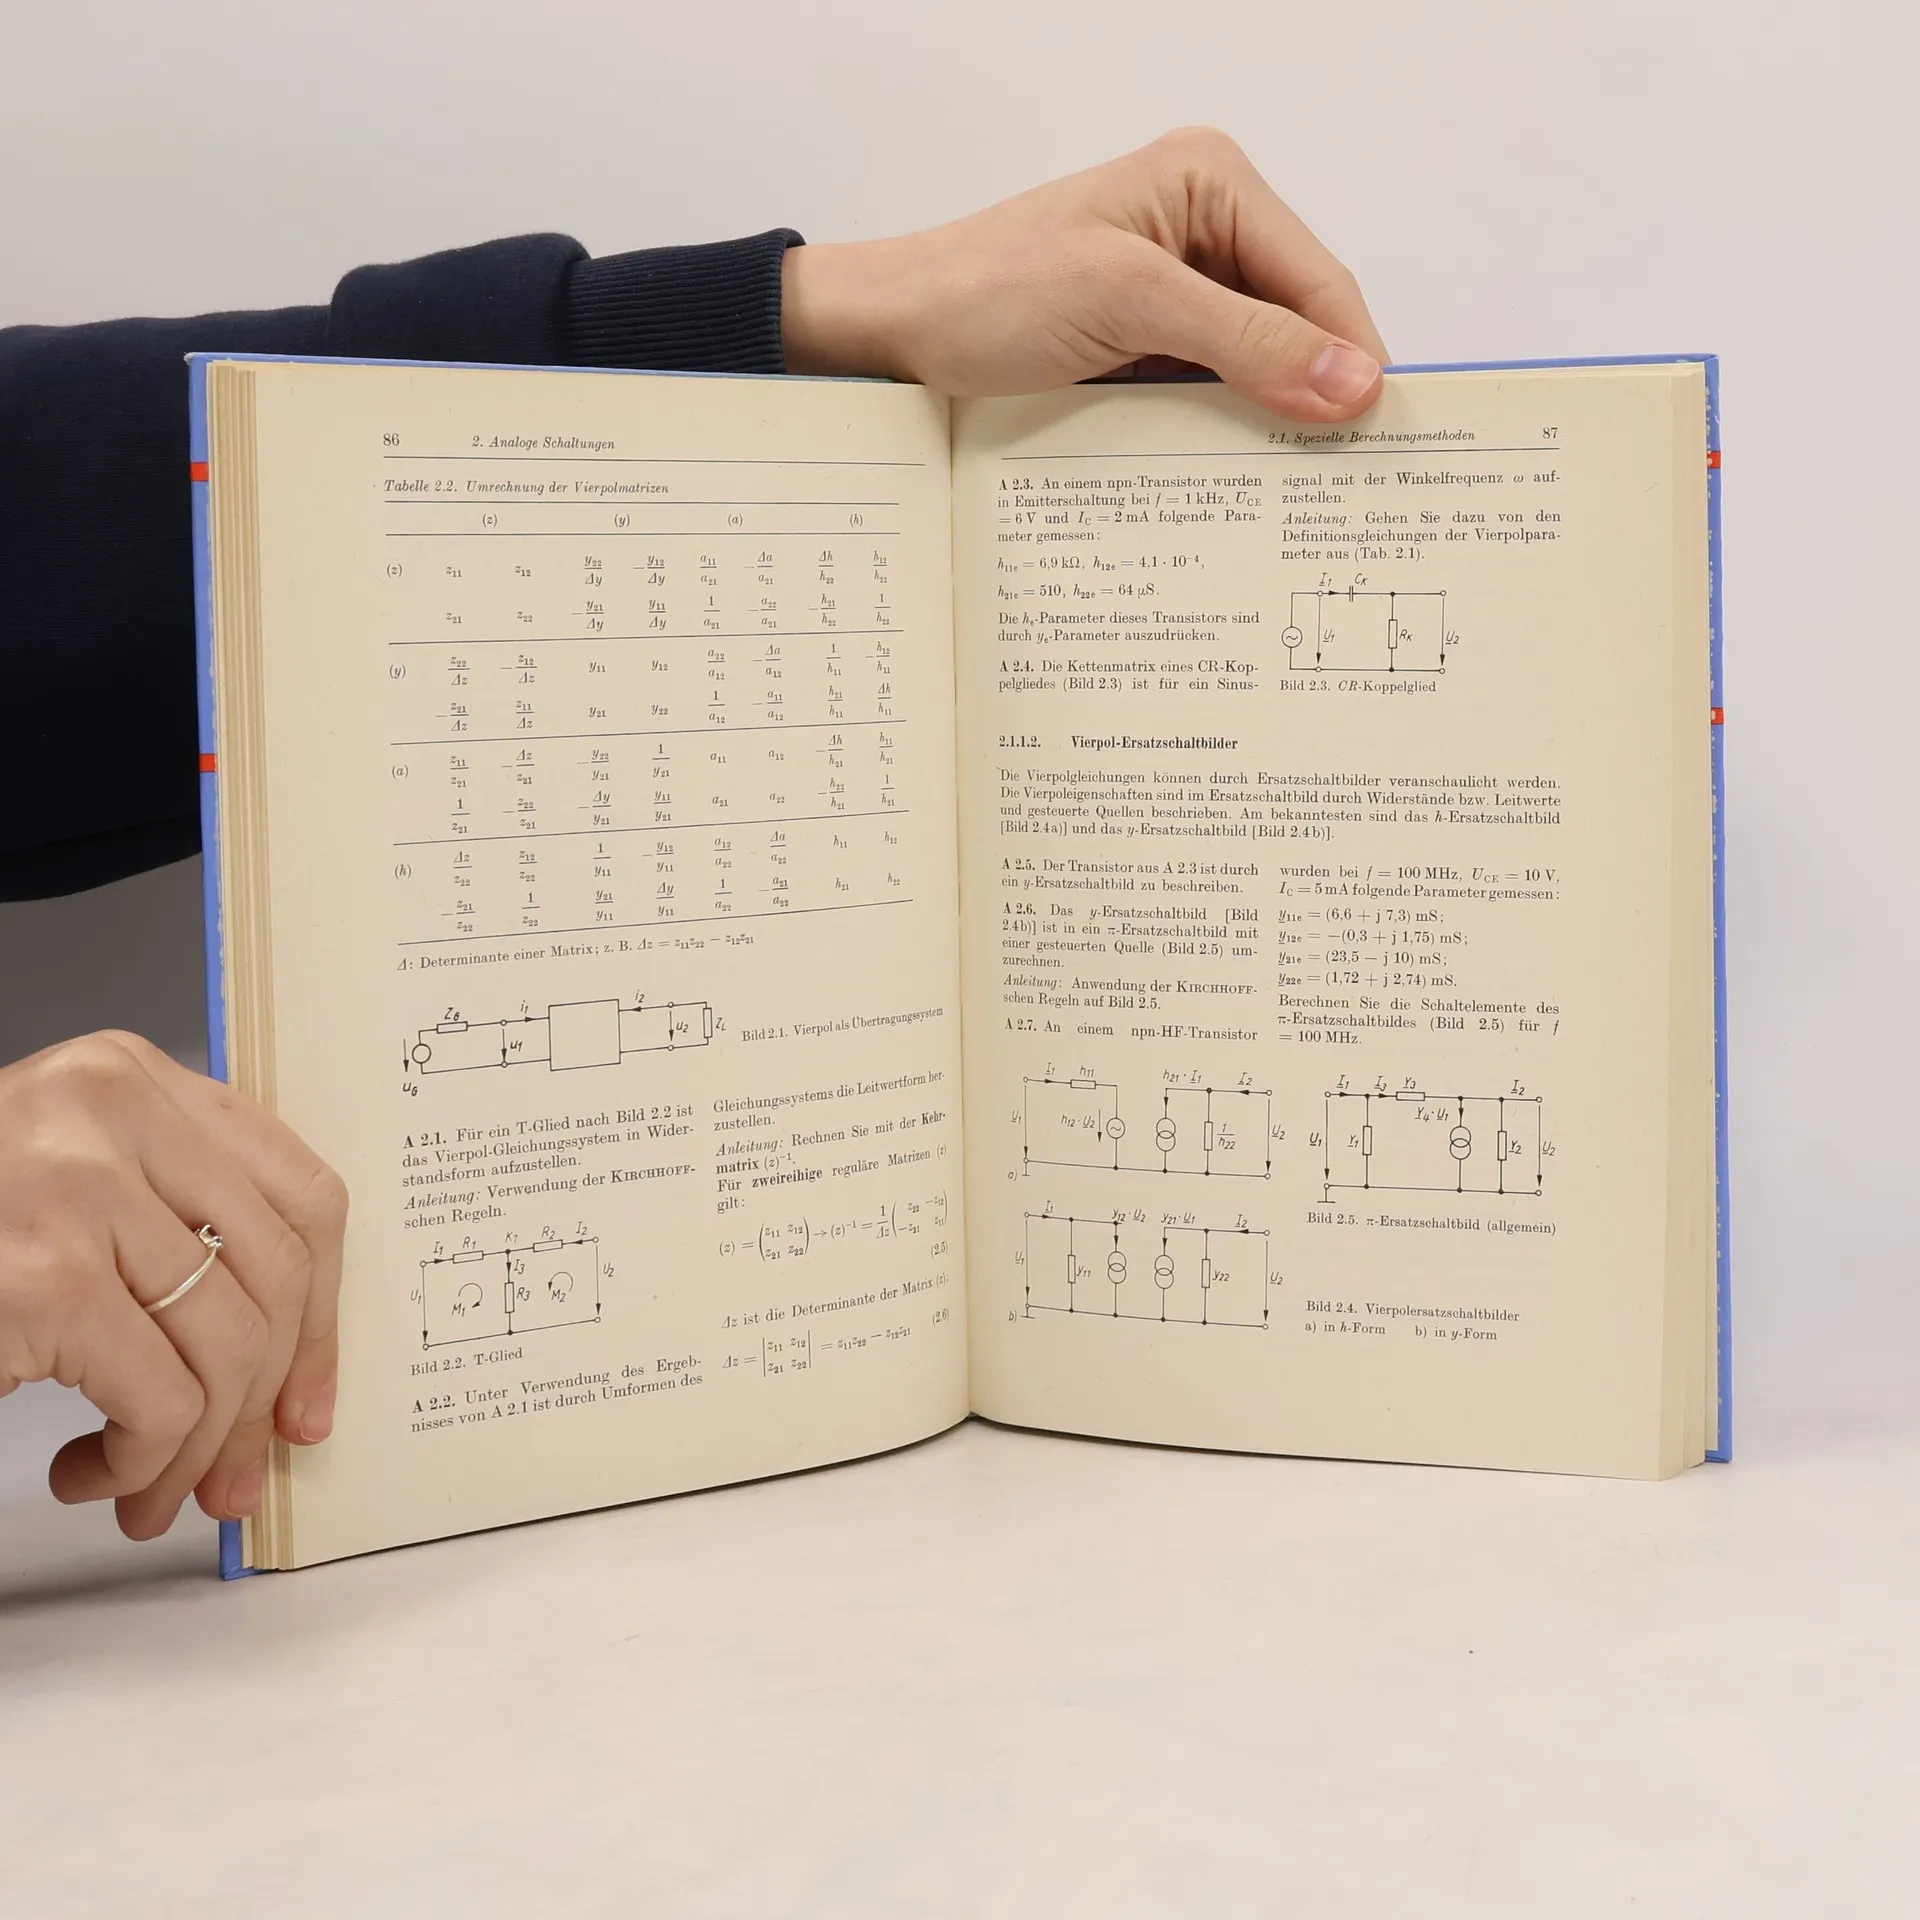 86 2. Analoge Schaltungen
Tabelle 2.2. Umrechnung der Vierpolmatrizen
(z) (y) (a) (h)
(z) z11 z12 y22/Δy −y12/Δy a11/a21 −Δa/a21 Δh/h22 h12/h22
z21 z22 −y21/Δy y11/Δy 1/a21 −a22/a21 −h21/h22 1/h22
(y) z22/Δz −z12/Δz y11 y12 a22/a12 −Δa/a12 1/h11 −h12/h11
−z21/Δz z11/Δz y21 y22 1/a12 −a11/a12 h21/h11 Δh/h11
(a) z11/z21 −Δz/z21 −y22/y21 1/y21 a11 a12 −Δh/h21 h11/h21
1/z21 −z22/z21 −Δy/y21 y11/y21 a21 a22 −h22/h21 1/h21
(h) Δz/z22 z12/z22 1/y11 −y12/y11 a12/a22 Δa/a22 h11 h12
−z21/z22 1/z22 y21/y11 Δy/y11 1/a22 −a21/a22 h21 h22
Δ: Determinante einer Matrix; z. B. Δz = z11z22 − z12z21
ZG i1 i2
uG u1 u2 ZL
Bild 2.1. Vierpol als Übertragungssystem
A 2.1. Für ein T-Glied nach Bild 2.2 ist
das Vierpol-Gleichungssystem in Wider-
standsform aufzustellen.
Anleitung: Verwendung der KIRCHHOFF-
schen Regeln.
I1 R1 K1 R2 I2
I3
U1 M1 R3 M2 U2
Bild 2.2. T-Glied
A 2.2. Unter Verwendung des Ergeb-
nisses von A 2.1 ist durch Umformen des
Gleichungssystems die Leitwertform her-
zustellen.
Anleitung: Rechnen Sie mit der Kehr-
matrix (z)−1.
Für zweireihige reguläre Matrizen (z)
gilt:
(z) = (z11 z12 z21 z22) → (z)−1 = 1/Δz (z22 −z12 −z21 z11)
(2.5)
Δz ist die Determinante der Matrix (z):
Δz = |z11 z12 z21 z22| = z11z22 − z12z21 (2.6)
2.1. Spezielle Berechnungsmethoden 87
A 2.3. An einem npn-Transistor wurden
in Emitterschaltung bei f = 1 kHz, UCE
= 6 V und IC = 2 mA folgende Para-
meter gemessen:
h11e = 6,9 kΩ, h12e = 4,1 · 10−4,
h21e = 510, h22e = 64 µS.
Die he-Parameter dieses Transistors sind
durch ye-Parameter auszudrücken.
A 2.4. Die Kettenmatrix eines CR-Kop-
pelgliedes (Bild 2.3) ist für ein Sinus-
signal mit der Winkelfrequenz ω auf-
zustellen.
Anleitung: Gehen Sie dazu von den
Definitionsgleichungen der Vierpolpara-
meter aus (Tab. 2.1).
I1 CK
U1 RK U2
Bild 2.3. CR-Koppelglied
2.1.1.2. Vierpol-Ersatzschaltbilder
Die Vierpolgleichungen können durch Ersatzschaltbilder veranschaulicht werden.
Die Vierpoleigenschaften sind im Ersatzschaltbild durch Widerstände bzw. Leitwerte
und gesteuerte Quellen beschrieben. Am bekanntesten sind das h-Ersatzschaltbild
[Bild 2.4a)] und das y-Ersatzschaltbild [Bild 2.4b)].
A 2.5. Der Transistor aus A 2.3 ist durch
ein y-Ersatzschaltbild zu beschreiben.
A 2.6. Das y-Ersatzschaltbild [Bild
2.4b)] ist in ein π-Ersatzschaltbild mit
einer gesteuerten Quelle (Bild 2.5) um-
zurechnen.
Anleitung: Anwendung der KIRCHHOFF-
schen Regeln auf Bild 2.5.
A 2.7. An einem npn-HF-Transistor
wurden bei f = 100 MHz, UCE = 10 V,
IC = 5 mA folgende Parameter gemessen:
y11e = (6,6 + j 7,3) mS;
y12e = −(0,3 + j 1,75) mS;
y21e = (23,5 − j 10) mS;
y22e = (1,72 + j 2,74) mS.
Berechnen Sie die Schaltelemente des
π-Ersatzschaltbildes (Bild 2.5) für f
= 100 MHz.
I1 h11 h21 · I1 I2
U1 h12 · U2 1/h22 U2
a)
I1 y12 · U2 y21 · U1 I2
U1 y11 y22 U2
b)
I1 I3 Y3 I2
Y4 · U1
U1 Y1 Y2 U2
Bild 2.5. π-Ersatzschaltbild (allgemein)
Bild 2.4. Vierpolersatzschaltbilder
a) in h-Form b) in y-Form